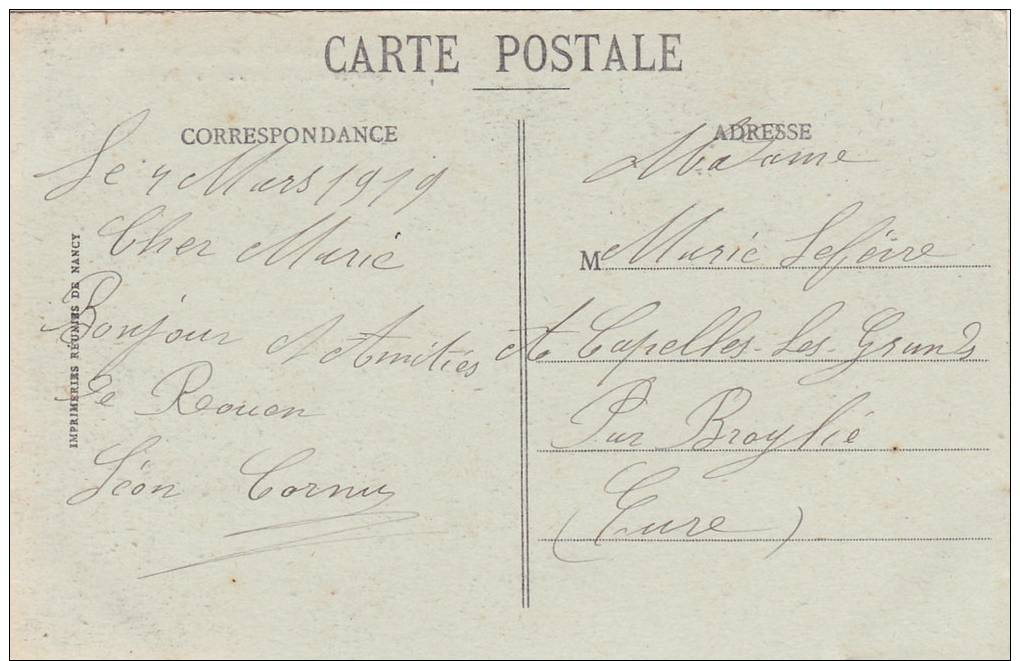 CARTE POSTALE
CORRESPONDANCE
Le 4 Mars 1919
Cher Marie
Bonjour Amitiés
de Rouen
Léon Cornu
IMPRIMERIES RÉUNIES DE NANCY
ADRESSE
Madame
M Marie Lefèvre
A Capelles-Les-Grands
Par Broylie
(Eure)